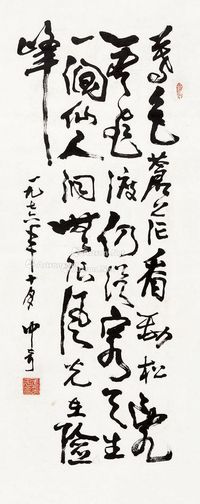 暮色蒼茫看勁松亂
雲飛渡仍從容天生
一個仙人洞無限風光在險
峰
一九七 年十月